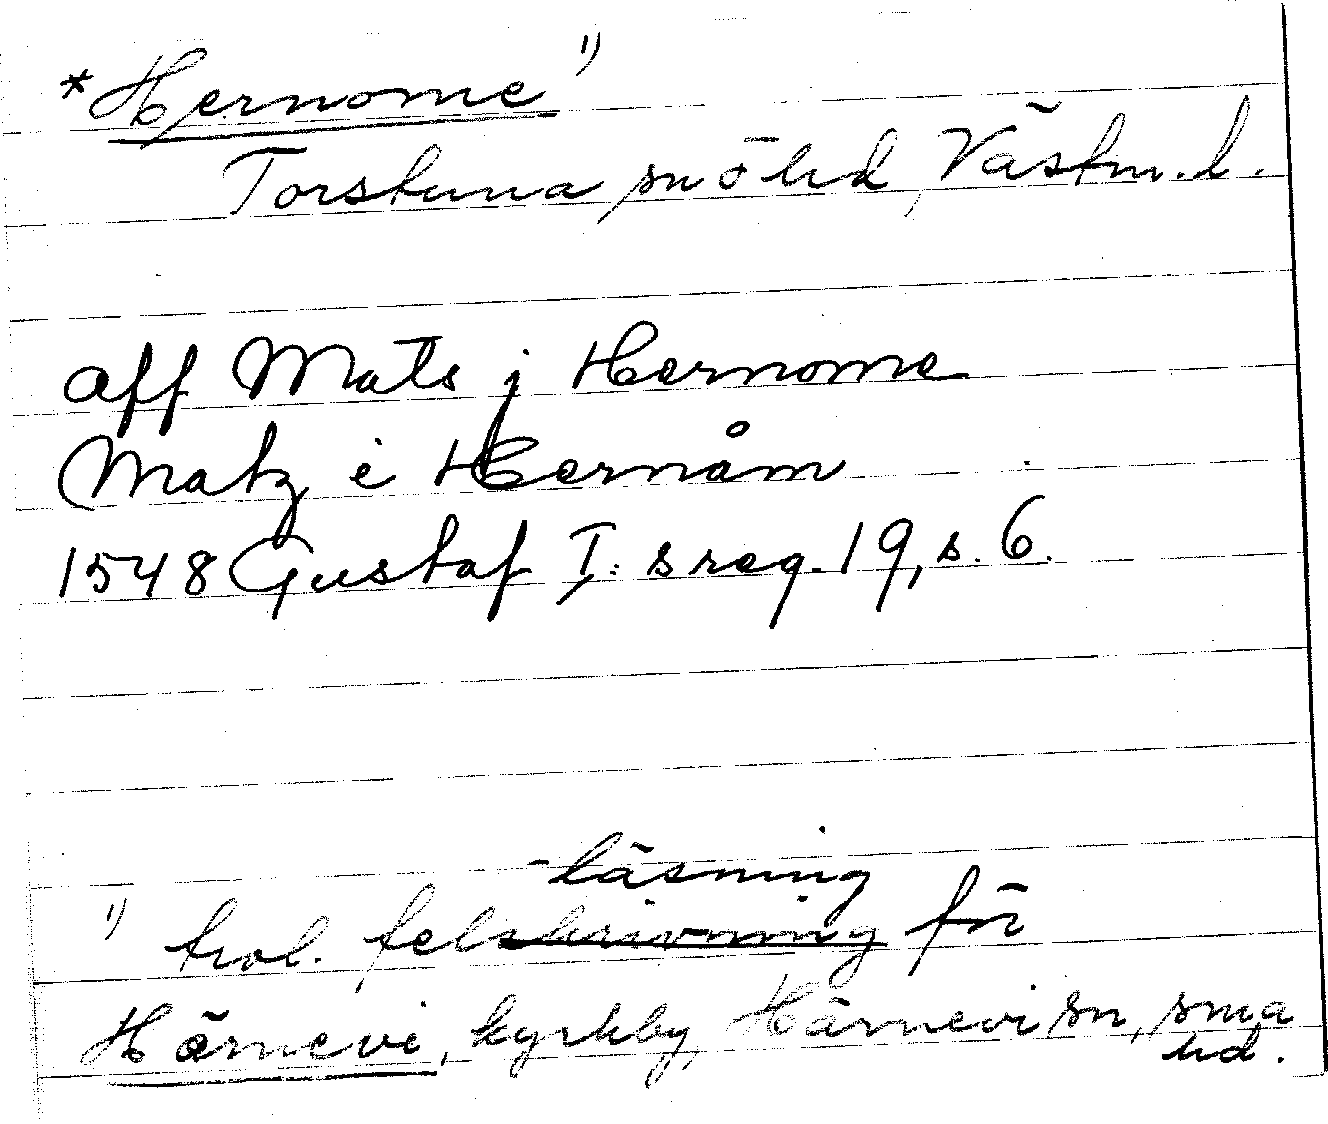 *Hernome 1)
Torstuna sn o hd, Västm. l.
aff Mats j Hernome
Matz i Hernåm
1548 Gustaf I:s reg. 19, s. 6.
-läsning
1) trol. felskrivning för
Härnevi, kyrkby, Härnevi sn, sma
hd.